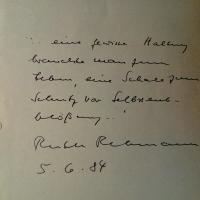 ... eine gewisse Haltung
brauchte man zum
Leben, eine Schale zum
Schutz vor Selbstent-
blößung..."
Ruth Rehmann
5.6.84